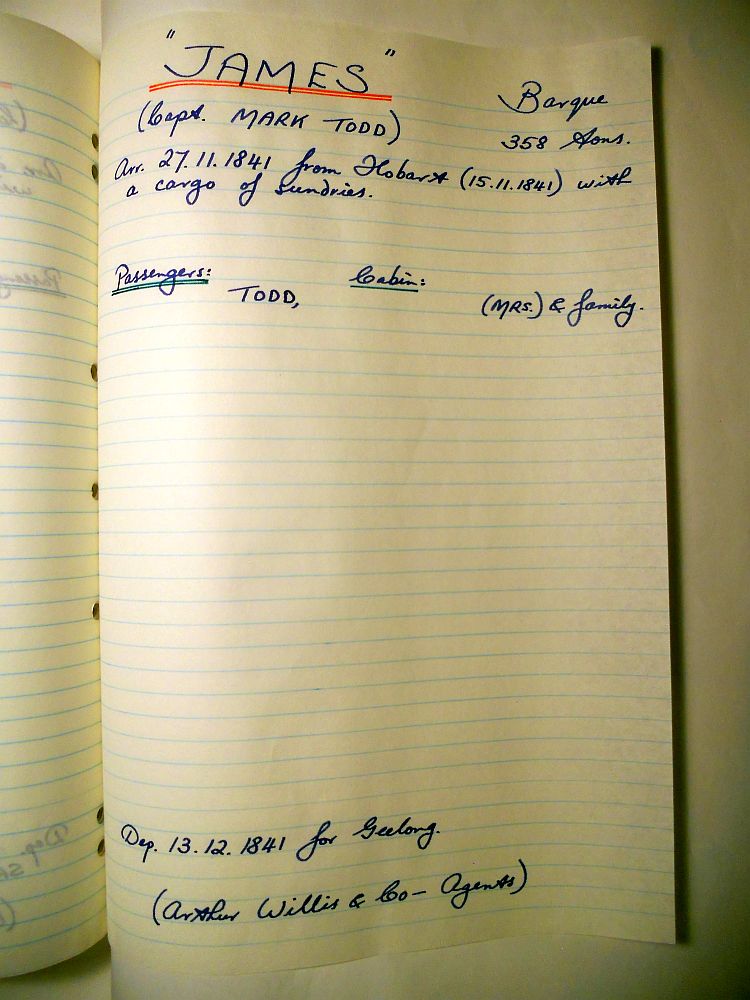 "JAMES"
Barque
(Capt. MARK TODD)
358 tons.
Arr. 27.11.1841 from Hobart (15.11.1841) with
a cargo of sundries.
Passengers:
Cabin:
TODD, (MRS.) & family.
Dep. 13.12.1841 for Geelong.
(Arthur Willis & Co – Agents)